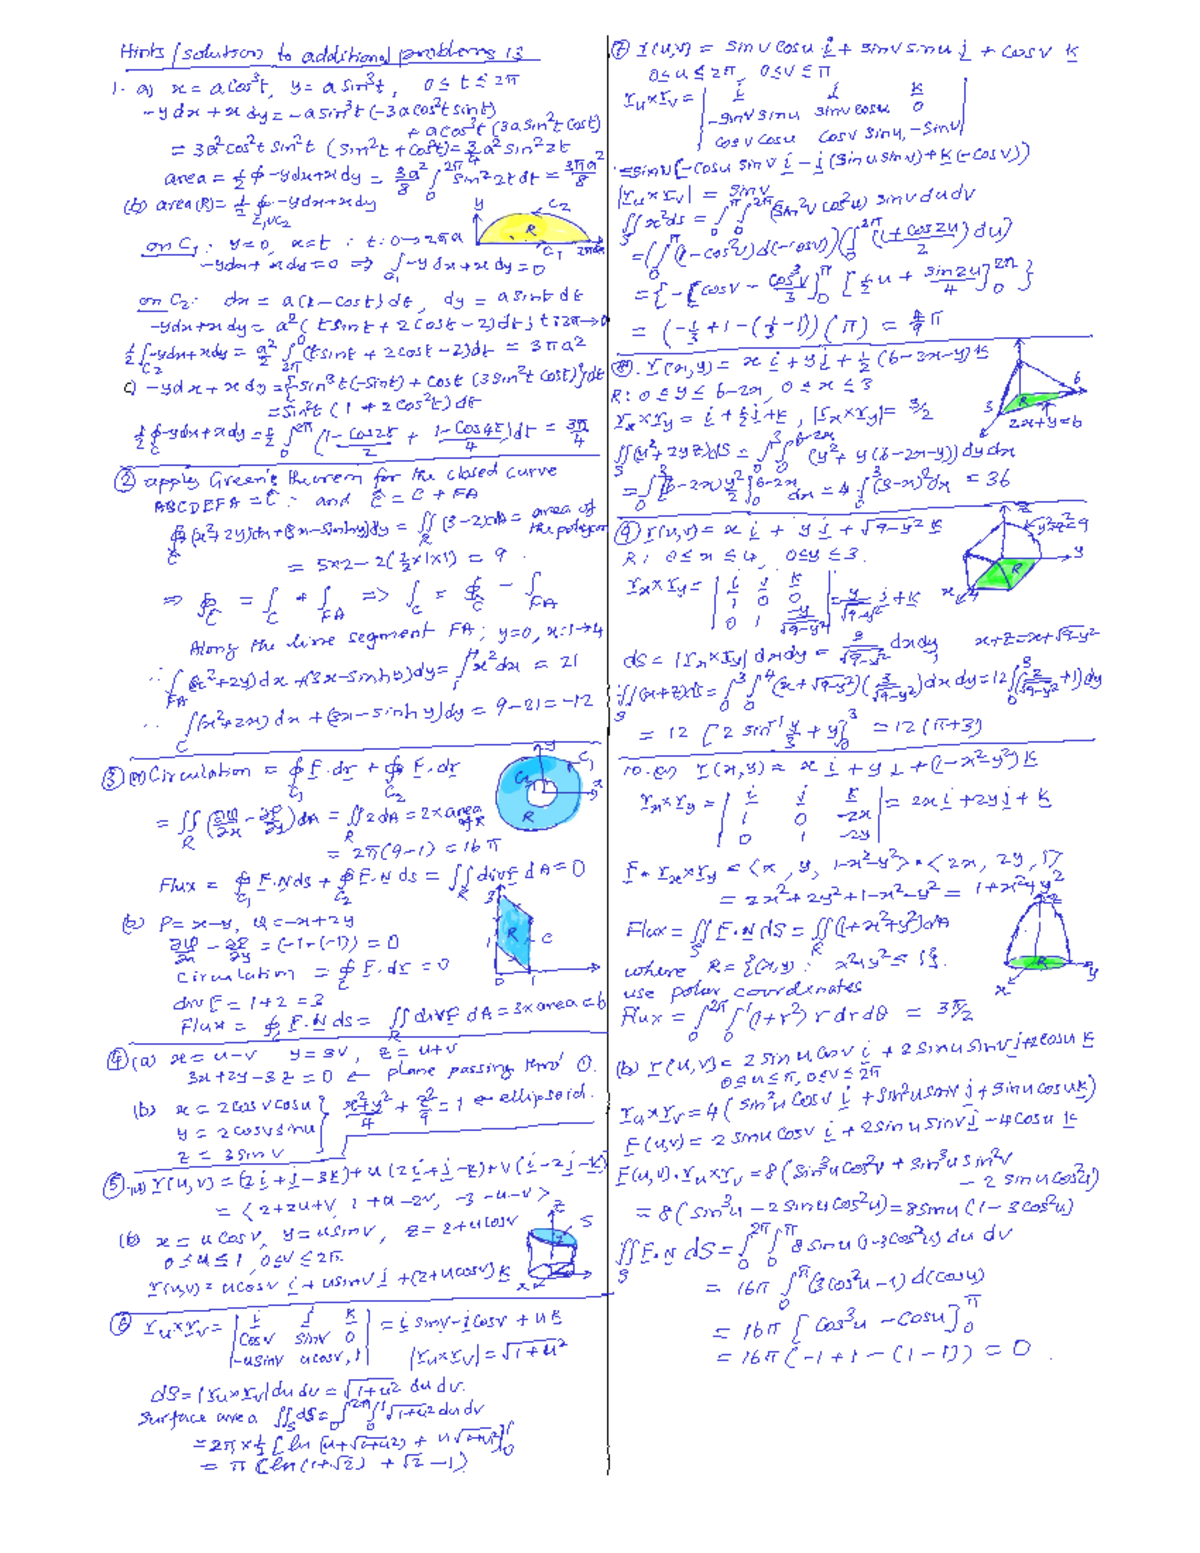 Hints/solution to additional problems 13
1. a) x = a cos³t, y = a sin³t, 0 ≤ t ≤ 2π
-y dx + x dy = -a sin³t (-3a cos²t sint)
+ a cos³t (3a sin²t cost)
= 3a² cos²t sin²t (sin²t + cos²t) = 3/4 a² sin² 2t
area = ½ ∮ -ydx+xdy = 3a²/8 ∫₀^2π sin² 2t dt = 3πa²/8
(b) area(R) = ½ ∮ -ydx+xdy
C₁∪C₂
y C₂ R C₁ 2πa
on C₁: y=0, x=t : t: 0→2πa
-ydx + xdy = 0 ⇒ ∫_C₁ -ydx+xdy = 0
on C₂: dx = a(1-cost)dt, dy = a sint dt
-ydx+xdy = a²(t sint + 2cost - 2)dt; t: 2π→0
½ ∫_C₂ -ydx+xdy = a²/2 ∫_2π^0 (t sint + 2cost - 2)dt = 3πa²
c) -ydx + xdy = {sin³t(-sint) + cost (3sin²t cost)}dt
= sin²t (1 + 2cos²t) dt
½ ∮_C -ydx+xdy = ½ ∫₀^2π (1-cos2t/2 + 1-cos4t/4) dt = 3π/4
② apply Green's theorem for the closed curve
ABCDEFA = Ĉ : and Ĉ = C + FA
∮_Ĉ (x²+2y)dx+(3x-sinhy)dy = ∬_R (3-2)dA = area of the polygon
= 5×2 - 2(½×1×1) = 9
⇒ ∮_Ĉ = ∫_C + ∫_FA ⇒ ∫_C = ∮_Ĉ - ∫_FA
Along the line segment FA; y=0, x:1→4
∴ ∫_FA (x²+2y)dx + (3x-sinhy)dy = ∫₁⁴ x²dx = 21
∴ ∫_C (x²+2x) dx + (3x-sinhy)dy = 9-21 = -12
③ (a) Circulation = ∮_C₁ F.dr + ∮_C₂ F.dr
y C₁ C₂ x R
= ∬_R (∂Q/∂x - ∂P/∂y)dA = ∬_R 2dA = 2×area of R
= 2π(9-1) = 16π
Flux = ∮_C₁ F.N ds + ∮_C₂ F.N ds = ∬_R divF dA = 0
(b) P = x-y, Q = -x+2y
∂Q/∂x - ∂P/∂y = (-1-(-1)) = 0
circulation = ∮_C F.dr = 0
div F = 1+2 = 3
Flux = ∮_C F.N ds = ∬_R divF dA = 3×area = 6
3 1 R C 0 1
④ (a) x = u-v y = 3v, z = u+v
3x+2y-3z = 0 ← plane passing thro' O.
(b) x = 2cosv cosu } x²+y²/4 + z²/9 = 1 ← ellipsoid.
y = 2cosv sinu
z = 3sinv
⑤ (a) r(u,v) = (2i+j-3k)+u(2i+j-k)+v(i-2j-k)
= <2+2u+v, 1+u-2v, -3-u-v>
(b) x = u cosv, y = u sinv, z = 2+u cosv
0≤u≤1, 0≤v≤2π
r(u,v) = u cosv i + u sinv j + (2+u cosv) k
z S x
⑥ r_u×r_v = | i j k | = i sinv - j cosv + u k
cosv sinv 0
-u sinv u cosv, 1
|r_u×r_v| = √1+u²
dS = |r_u×r_v| du dv = √1+u² du dv.
Surface area ∬_S dS = ∫₀^2π ∫₀¹ √1+u² du dv
= 2π×½ [ln(u+√1+u²) + u√1+u²]₀¹
= π (ln(1+√2) + √2 - 1)
⑦ r(u,v) = sinv cosu i + sinv sinu j + cosv k
0≤u≤2π, 0≤v≤π
r_u×r_v = | i j k |
-sinv sinu sinv cosu 0
cosv cosu cosv sinu, -sinv
= sinv[-cosu sinv i - j (sinu sinv) + k(-cosv)]
|r_u×r_v| = sinv
∬_S x²dS = ∫₀^π ∫₀^2π (sin²v cos²u) sinv du dv
= (∫₀^π (1-cos²v) d(-cosv)) (∫₀^2π (1+cos2u/2) du)
= {-[cosv - cos³v/3]₀^π [½u + sin2u/4]₀^2π}
= (-⅓+1-(⅓-1))(π) = 4/3 π
⑧. r(x,y) = x i + y j + ½(6-2x-y) k
R: 0≤y≤6-2x, 0≤x≤3
r_x×r_y = i+½j+k, |r_x×r_y| = 3/2
3 6 R 2x+y=6
∬_S (y²+2yz)dS = ∫₀³ ∫₀^6-2x (y²+y(6-2x-y)) dy dx
= ∫₀³ (6-2x) y²/2 ]₀^6-2x dx = 4∫₀³ (3-x)³dx = 36
⑨ r(u,v) = x i + y j + √9-y² k
R: 0≤x≤4, 0≤y≤3.
z y²+z²=9 y R x 4
r_x×r_y = | i j k | = y/√9-y² j + k
1 0 0
0 1 -y/√9-y²
dS = |r_x×r_y| dxdy = 3/√9-y² dxdy, x+z = x+√9-y²
∬_S (x+z)dS = ∫₀³ ∫₀⁴ (x+√9-y²)(3/√9-y²) dx dy = 12∫₀³ (2/√9-y² + 1) dy
= 12 [2 sin⁻¹ y/3 + y]₀³ = 12(π+3)
10. (a) r(x,y) = x i + y j + (1-x²-y²) k
r_x×r_y = | i j k | = 2x i + 2y j + k
1 0 -2x
0 1 -2y
F • r_x×r_y = <x, y, 1-x²-y²> • <2x, 2y, 1>
= 2x²+2y²+1-x²-y² = 1+x²+y²
Flux = ∬_S F.N dS = ∬_R (1+x²+y²)dA
where R = {(x,y) : x²+y² ≤ 1}.
use polar coordinates
z R x y
Flux = ∫₀^2π ∫₀¹ (1+r²) r dr dθ = 3π/2
(b) r(u,v) = 2 sinu cosv i + 2 sinu sinv j + 2cosu k
0≤u≤π, 0≤v≤2π
r_u×r_v = 4(sin²u cosv i + sin²u sinv j + sinu cosu k)
F(u,v) = 2 sinu cosv i + 2sinu sinv j - 4cosu k
F(u,v).r_u×r_v = 8(sin³u cos²v + sin³u sin²v
- 2 sinu cos²u)
= 8(sin³u - 2 sinu cos²u) = 8sinu (1-3cos²u)
∬_S F.N dS = ∫₀^2π ∫₀^π 8 sinu (1-3cos²u) du dv
= 16π ∫₀^π (3cos²u-1) d(cosu)
= 16π [cos³u - cosu]₀^π
= 16π(-1+1-(1-1)) = 0.